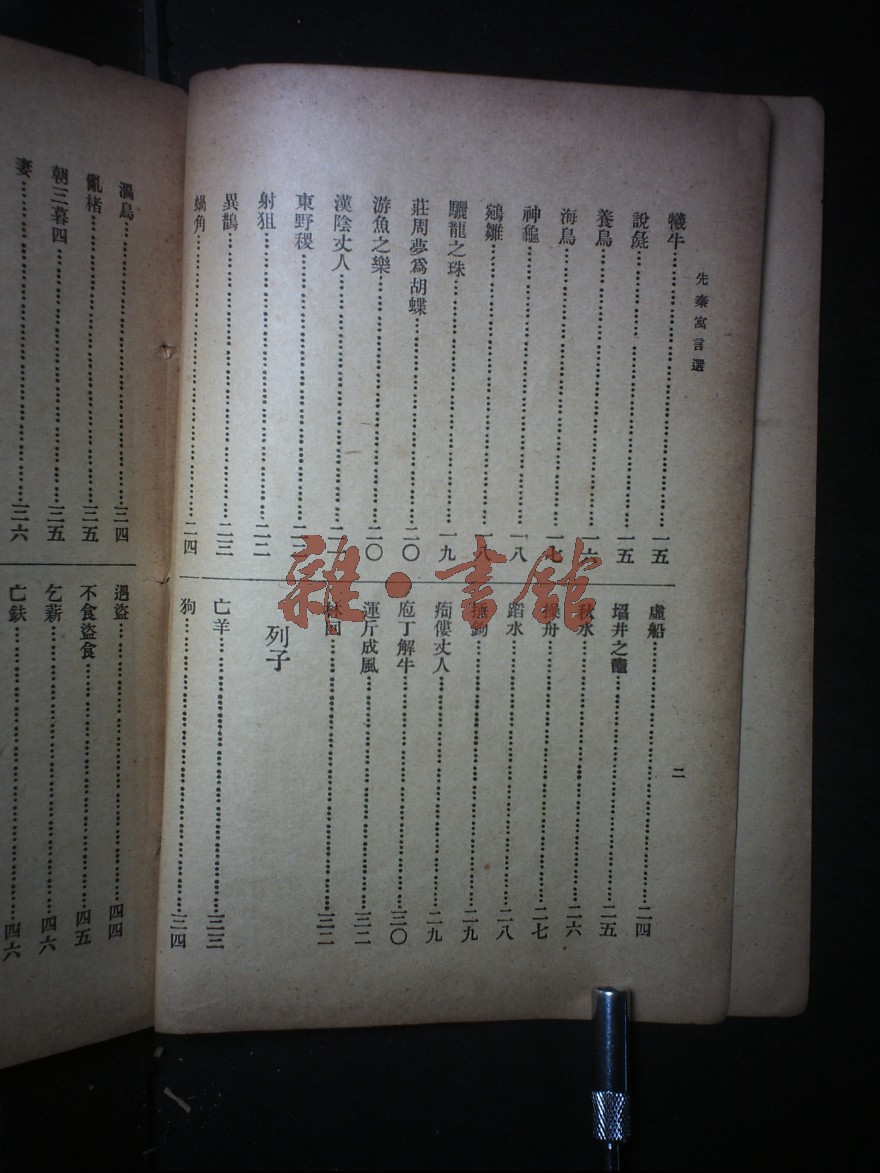 先秦寓言選
犧牛……一五
說彘……一五
養鳥……一六
海鳥……一七
神龜……一八
鵷雛……一八
驪龍之珠……一九
莊周夢爲胡蝶……二〇
游魚之樂……二〇
漢陰丈人……二一
東野稷……二二
射狙……二二
異鵲……二三
蝸角……二四
虛船……二四
埳井之鼃……二五
秋水……二六
操舟……二七
蹈水……二八
捶鉤……二九
痀僂丈人……二九
庖丁解牛……三〇
運斤成風……三二
林回……三二
列子
亡羊……三三
狗……三四
二
漚鳥……三四
朝三暮四……三五
妻……三六
遇盜……四四
不食盜食……四五
乞薪……四六
亡鈇……四六
雜·書館